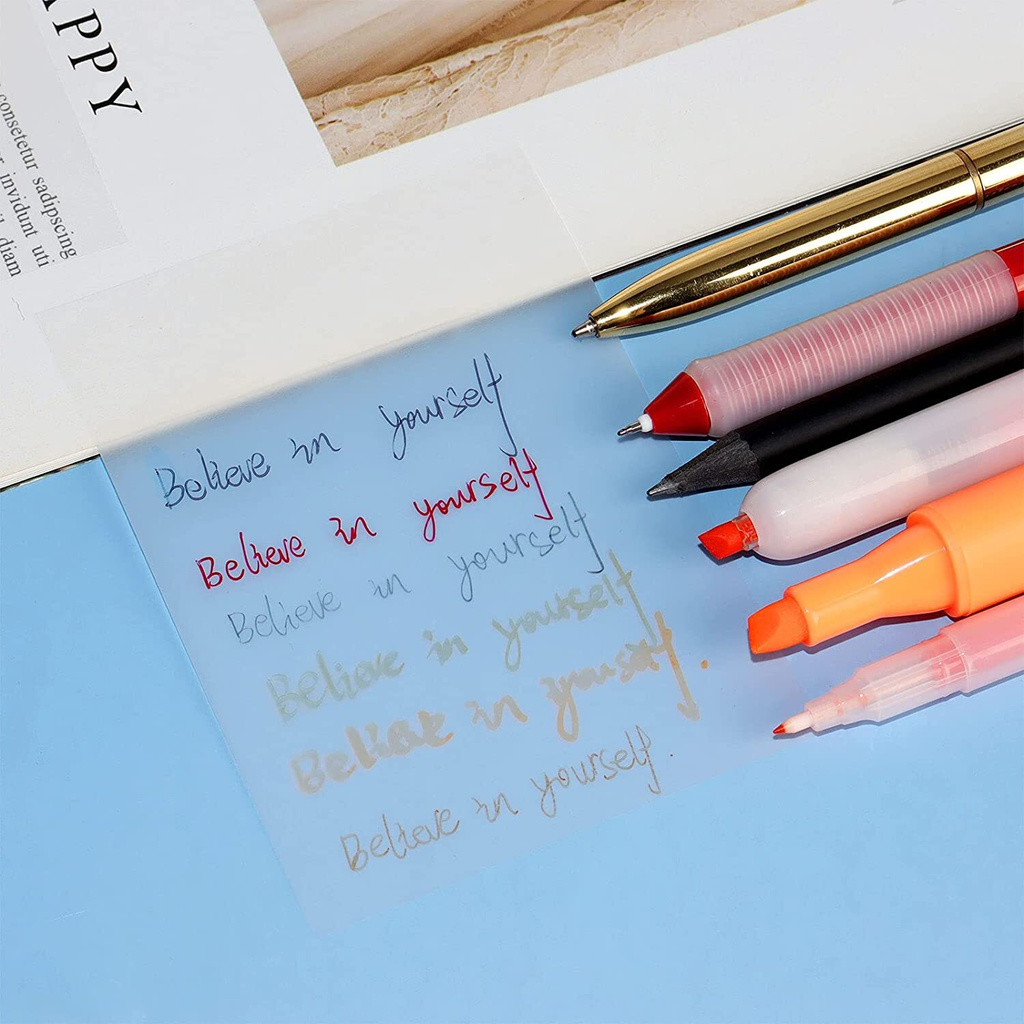 APPY
consetetur sadipscing
invidunt uti
diam
Believe in yourself
Believe in yourself
Believe in yourself
Believe in yourself
Believe in yourself
Believe in yourself.